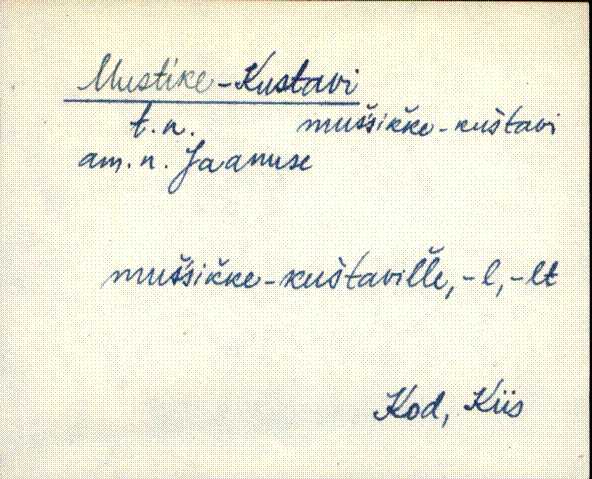 Mustike-Kustavi
t.n. muš́sikke-kuštavi
am.n. Jaanuse
muš́sikke-kuštaville, -l, -lt
Kod, Kiis